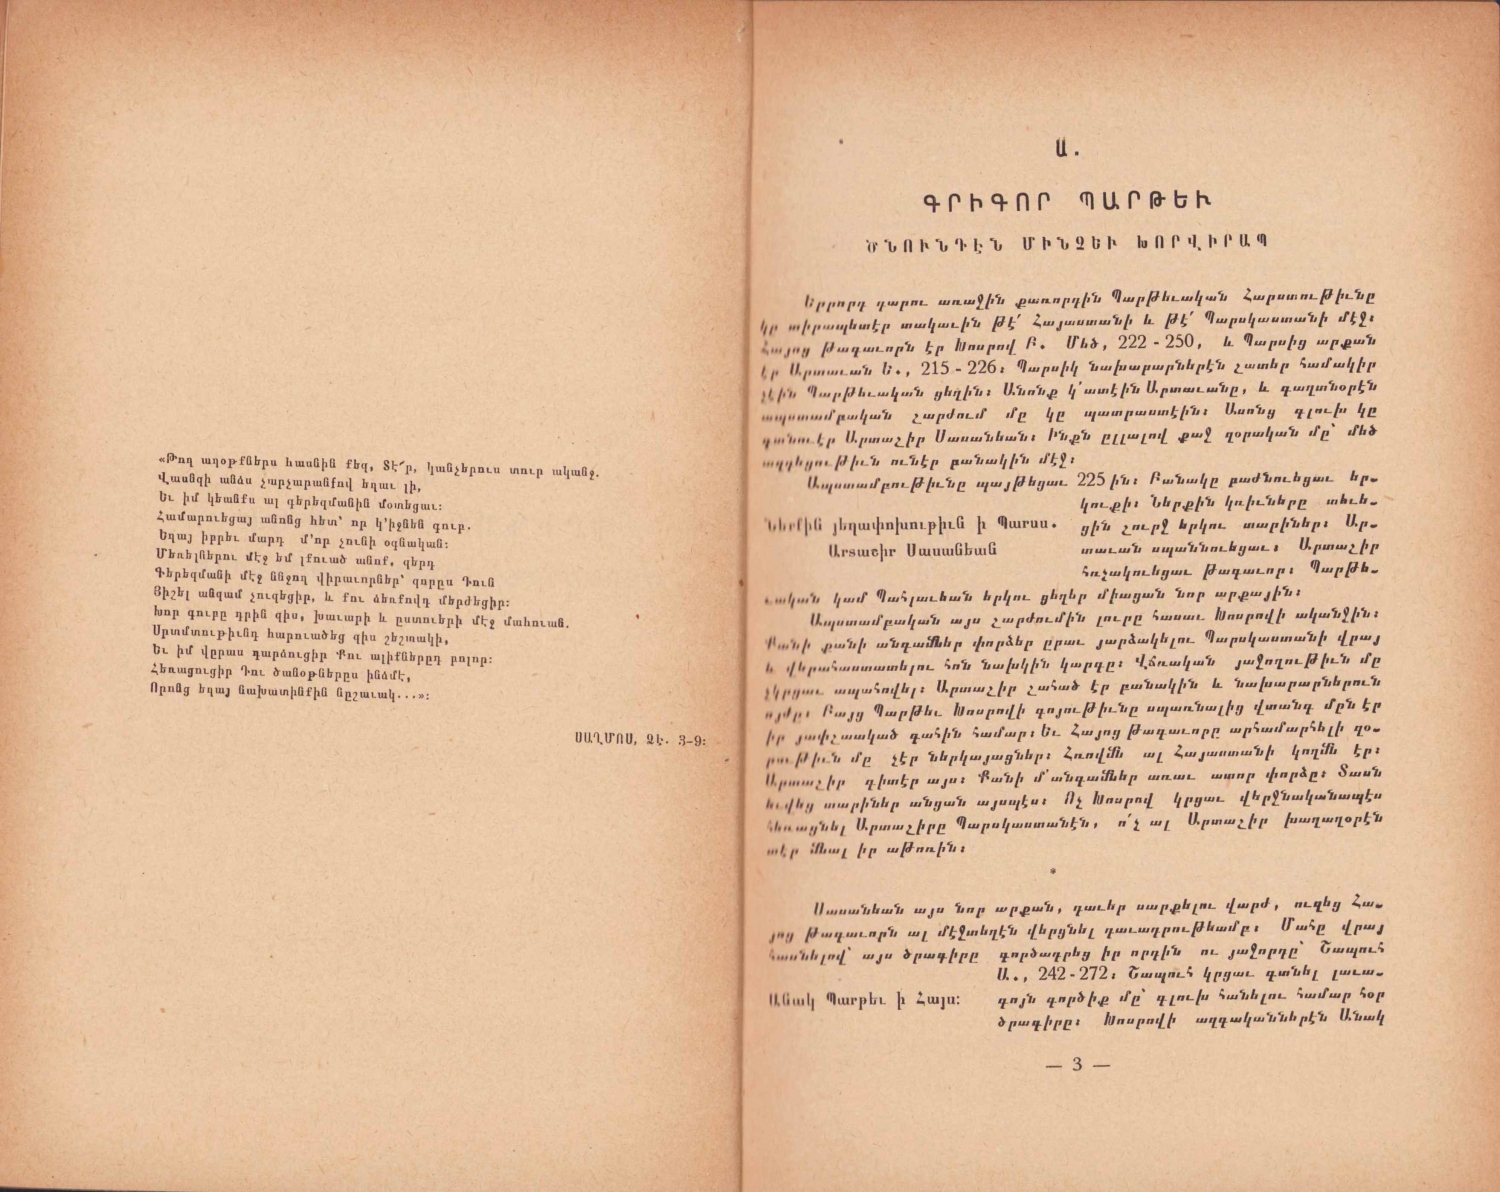 «Թող աղօթքներս հասնին քեզ, Տէ՜ր, կանչերուս տուր ականջ.
Վասնզի անձս չարչարանքով եղաւ լի,
Եւ իմ կեանքս ալ գերեզմանին մօտեցաւ:
Համարուեցայ անոնց հետ՝ որ կ'իջնեն գուբ.
Եղայ իբրեւ մարդ մ'որ չունի օգնական:
Մեռելներու մէջ եմ լքուած անոք, զերդ
Գերեզմանի մէջ ննջող վիրաւորներ՝ զորըս Դուն
Յիշել անգամ չուզեցիր, և քու ձեռքովդ մերժեցիր:
Խոր գուբը դրին զիս, խաւարի և ըստուերի մէջ մահուան.
Սրտմտութիւնդ հարուածեց զիս շեշտակի,
Եւ իմ վըրաս դարձուցիր Քու ալիքներըդ բոլոր:
Հեռացուցիր Դու ծանօթներըս ինձմէ,
Որոնց եղայ նախատինքին նըշաւակ...»:
ՍԱՂՄՈՍ, ՁԷ. 3-9:
Ա.
ԳՐԻԳՈՐ ՊԱՐԹԵՒ
ԾՆՈՒՆԴԷՆ ՄԻՆՉԵՒ ԽՈՐՎԻՐԱՊ
Երրորդ դարու առաջին քառորդին Պարթեւական Հարստութիւնը
կը տիրապետէր տակաւին թէ՛ Հայաստանի և թէ՛ Պարսկաստանի մէջ:
Հայոց թագաւորն էր Խոսրով Բ. Մեծ, 222 - 250, և Պարսից արքան
էր Արտաւան Ե., 215 - 226: Պարսիկ նախարարներէն շատեր համակիր
չէին Պարթեւական ցեղին: Անոնք կ'ատէին Արտաւանը, և գաղտնօրէն
ապստամբական շարժում մը կը պատրաստէին: Ասոնց գլուխ կը
գտնուէր Արտաշիր Սասանեան: Ինքն ըլլալով քաջ զօրական մը՝ մեծ
ազդեցութիւն ունէր բանակին մէջ:
Ապստամբութիւնը պայթեցաւ 225 ին: Բանակը բաժնուեցաւ եր-
կուքի: Ներքին կռիւները տեւե-
Ներքին յեղափոխութիւն ի Պարսս.
ցին շուրջ երկու տարիներ: Ար-
Արտաշիր Սասանեան
տաւան սպաննուեցաւ: Արտաշիր
հռչակուեցաւ թագաւոր: Պարթե-
ւական կամ Պահլաւեան երկու ցեղեր միացան նոր արքային:
Ապստամբական այս շարժումին լուրը հասաւ Խոսրովի ականջին:
Քանի քանի անգամներ փորձեր ըրաւ յարձակելու Պարսկաստանի վրայ
և վերահաստատելու հոն նախկին կարգը: Վճռական յաջողութիւն մը
չկրցաւ ապահովել: Արտաշիր շահած էր բանակին և նախարարներուն
ոյժը: Բայց Պարթեւ Խոսրովի գոյութիւնը սպառնալից վտանգ մըն էր
իր յափշտակած գահին համար: Եւ Հայոց թագաւորը արհամարհելի զօ-
րութիւն մը չէր ներկայացներ: Հռովմն ալ Հայաստանի կողմն էր:
Արտաշիր գիտէր այս: Քանի մ'անգամներ առաւ ատոր փորձը: Տասն
եւվեց տարիներ անցան այսպէս: Ոչ Խոսրով կրցաւ վերջնականապէս
հեռացնել Արտաշիրը Պարսկաստանէն, ո՛չ ալ Արտաշիր խաղաղօրէն
տէր մնալ իր աթոռին:
*
Սասանեան այս նոր արքան, դաւեր սարքելու վարժ, ուզեց Հա-
յոց թագաւորն ալ մէջտեղէն վերցնել դաւադրութեամբ: Մահը վրայ
հասնելով՝ այս ծրագիրը գործադրեց իր որդին ու յաջորդը՝ Շապուհ
Ա., 242 - 272: Շապուհ կրցաւ գտնել լաւա-
Անակ Պարթեւ ի Հայս:
գոյն գործիք մը՝ գլուխ հանելու համար հօր
ծրագիրը: Խոսրովի ազգականներէն Անակ
— 3 —